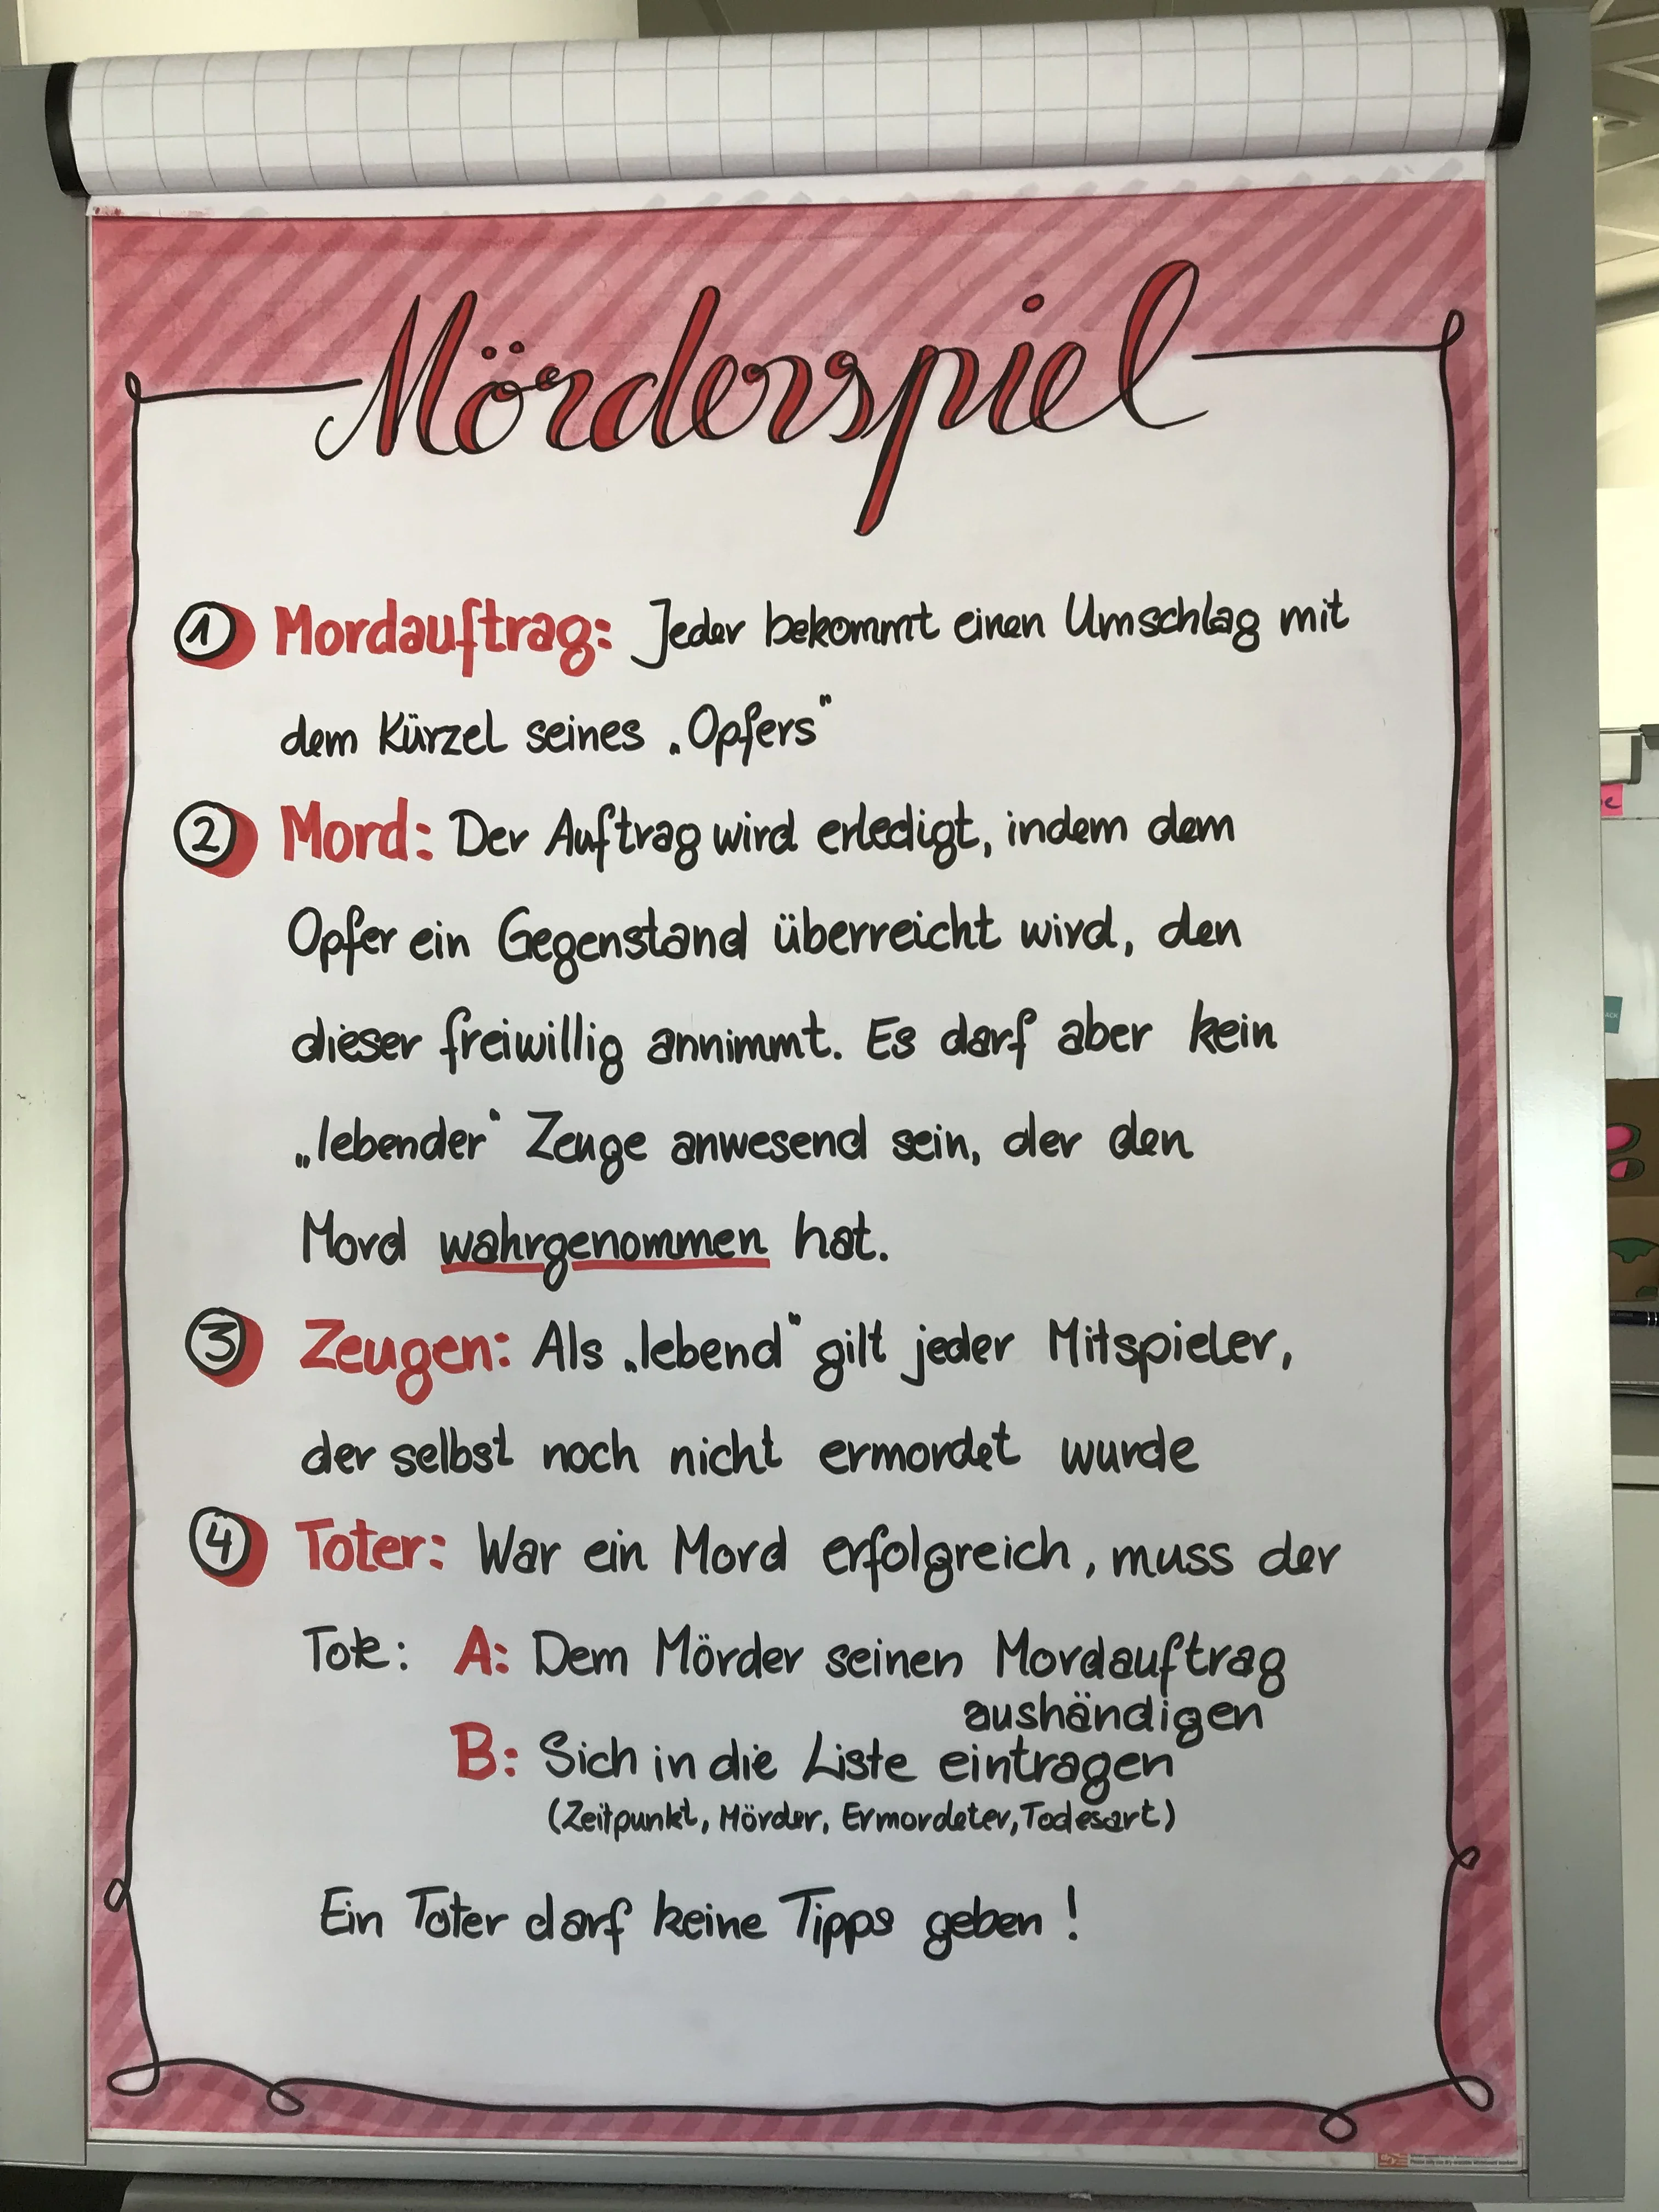 Mörderspiel
1 Mordauftrag: Jeder bekommt einen Umschlag mit
dem Kürzel seines „Opfers"
2 Mord: Der Auftrag wird erledigt, indem dem
Opfer ein Gegenstand überreicht wird, den
dieser freiwillig annimmt. Es darf aber kein
„lebender" Zeuge anwesend sein, der den
Mord wahrgenommen hat.
3 Zeugen: Als „lebend" gilt jeder Mitspieler,
der selbst noch nicht ermordet wurde
4 Toter: War ein Mord erfolgreich, muss der
Tote: A: Dem Mörder seinen Mordauftrag
aushändigen
B: Sich in die Liste eintragen
(Zeitpunkt, Mörder, Ermordeter, Todesart)
Ein Toter darf keine Tipps geben!